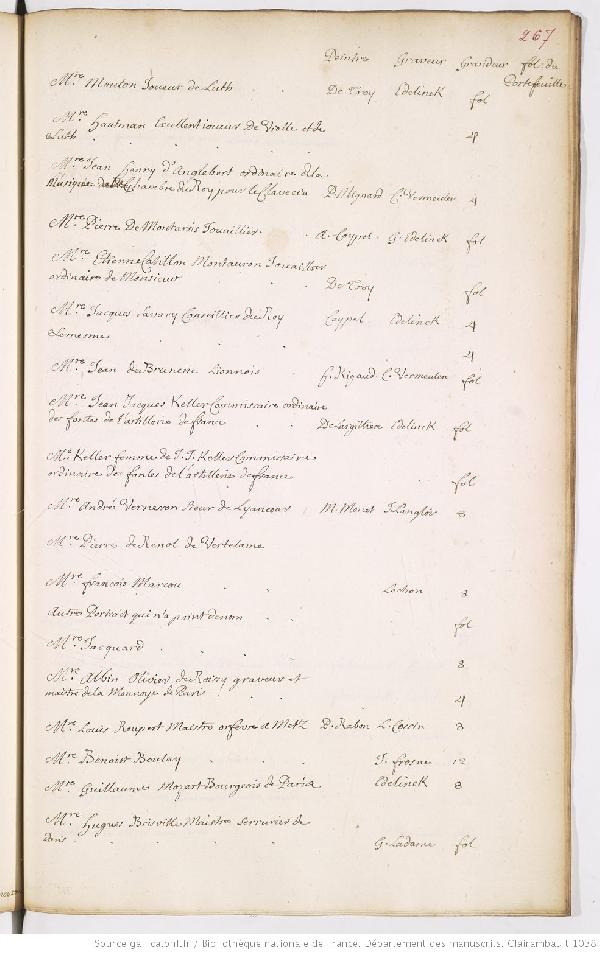 267
Peintre Graveur Grandeur fol. du
Portefeuille
M.re Mouton Joueur de Luth . De Troy Edelinck fol
M.re Hautman Excellent joueur de Violle et de
Luth . . . 4
M.re Jean Henry d'Anglebert ordinaire de la
Musique de la Chambre du Roy pour le Clavecin P. Mignard C. Vermeulen 4
M.re Pierre De Montarsis Jouaillier . . A. Coypel . G. Edelinck fol
M.re Etienne Montauron Jouaillier
ordinaire de Monsieur . . De Troy fol
M.re Jacques Savary Conseillier du Roy Coypel Edelinck 4
Le mesme . . . 4
M.re Jean de Brunenc Lionnois . H. Rigaud C. Vermeulen fol
M.re Jean Jacques Keller Commissaire ordinaire
des fontes de l'artillerie de france De Largilliere Edelinck fol
M.e Keller femme de J. J. Keller Commissaire
ordinaire des fontes de l'artillerie de france fol
M.re André Verneson Sieur de Lyancour M. Monet J. Langlois 8
M.re Pierre de Renol de Vertelame
M.re françois Marcou . . Lochon 8
Autre Portrait qui n'a point de nom . . fol
M.re Jacquard . . . 8
M.re Albin Olivier de graveur et
maitre de la Monnoye de Paris . . 4
M.re Louis Roupert Maistre orfevre a Metz P. Rabon L. Cossin 8
M.re Benoist Boulay . . J. frosne 12
M.re Guillaume Bourgeois de Paris Edelinck 8
M.re Hugues Brisville Maistre Serrurier de
Paris . . . . G. Ladame fol
Source gallica.bnf.fr / Bibliothèque nationale de France. Département des manuscrits. Clairambault 1038